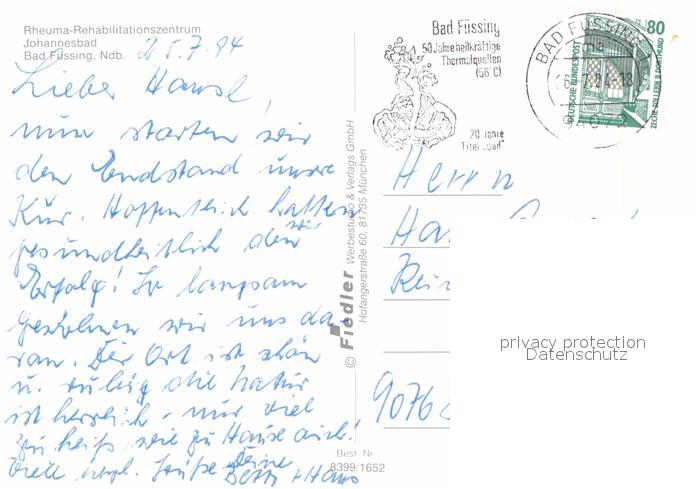 Rheuma-Rehabilitationszentrum
Johannesbad
Bad Füssing, Ndb.
25.7.94
Lieber Hansl,
nun starten wir
den Endstand unsre
Kur. Hoffentlich hatten
wir
gesundheitlich den
Erfolg! So langsam
gewöhnen wir uns da-
ran. Der Ort ist schön
u. ruhig die Natur
ist herrlich - nur viel
zu heiß, wie zu Hause auch!
Viele herzl. Grüße Deine
Betti + Hans
© Fiedler Werbestudio & Verlags GmbH
Hofangerstraße 60, 81735 München
Best. Nr.
8399/1652
Bad Füssing
50 Jahre heilkräftige
Thermalquellen
(56°C)
20 Jahre
Titel "Bad"
BAD FÜSSING
80
DEUTSCHE BUNDESPOST
ZECHE ZOLLERN II DORTMUND
Herrn
Ha
Rei
9076
privacy protection
Datenschutz